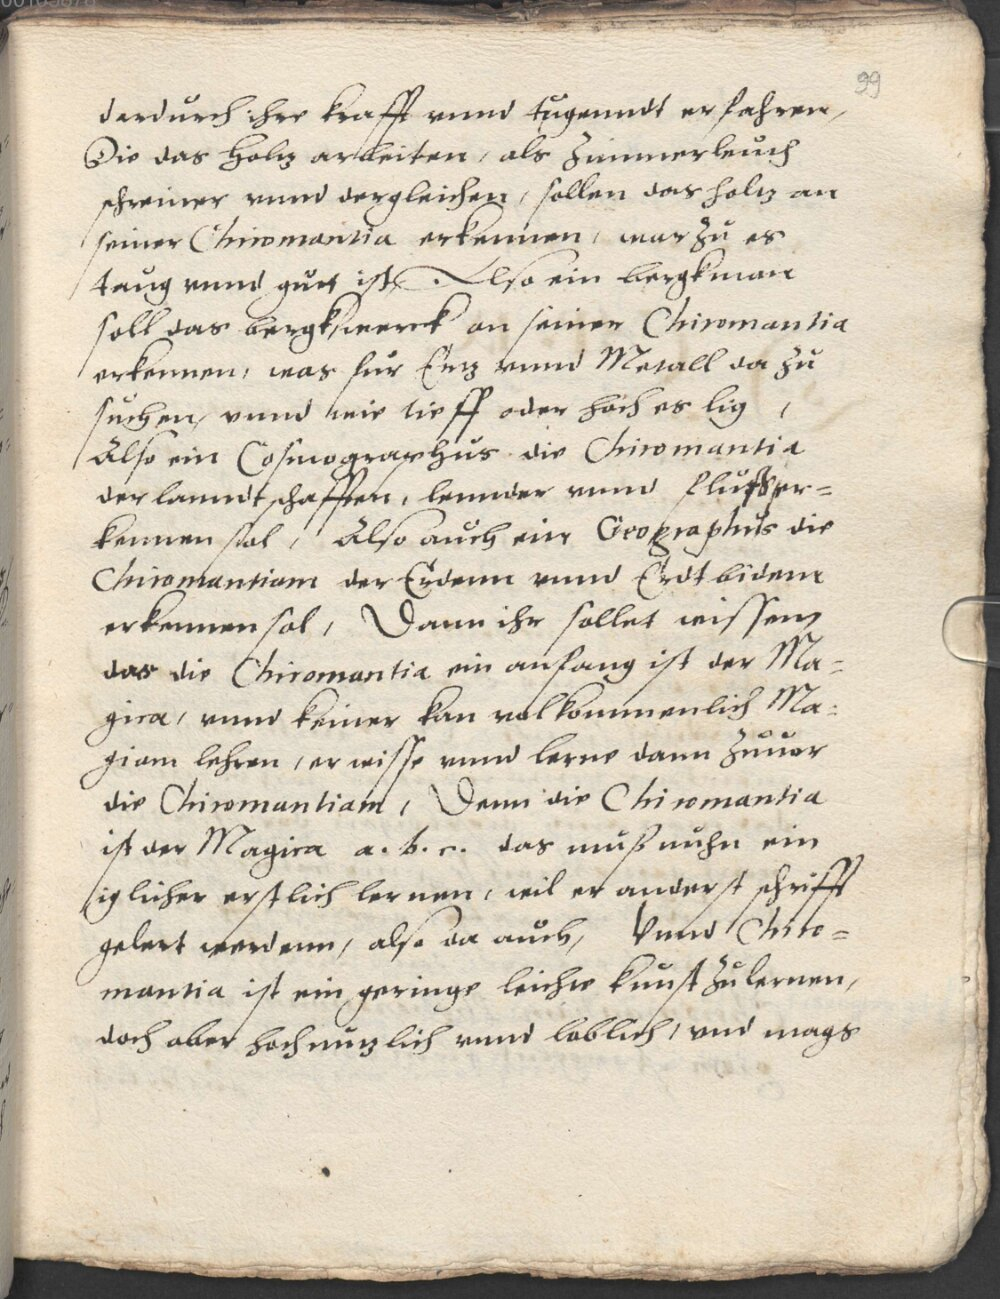 99
dardurch ihre krafft vnnd tugenndt erfahren,
Die das Holtz arbeiten, als Zimmerleuth
schreiner vnnd dergleichen, sollen das holtz an
seiner Chiromantia erkennen, warzu es
taug vnnd guet ist. Also ein bergkman
soll das bergkwerck an seiner Chiromantia
erkennen, was fur Ertz vnnd Metall da zu
suchen, vnnd wie tieff oder hoch es lig,
Also ein Cosmographus die Chiromantia
der lanndtschafften, lennder vnnd fluß er=
kennen sol, Also auch ein Geographus die
Chiromantiam der Erdenn vnnd Erdtbidem
erkennen sol, Dann ihr sollet wissen,
das die Chiromantia ein anfang ist der Ma=
gica, vnnd keiner kan volkommenlich Ma=
giam lehren, er wisse vnnd lerne dann zuuor
die Chiromantiam, Denn die Chiromantia
ist der Magica a. b. c. das muß nuhn ein
iglicher erstlich lernen, wil er anderst schrifft
gelert werdenn, also da auch, Vnnd Chiro=
mantia ist ein geringe leichte kunst zulernen,
doch aber hochnutzlich vnnd loblich, vnd mags